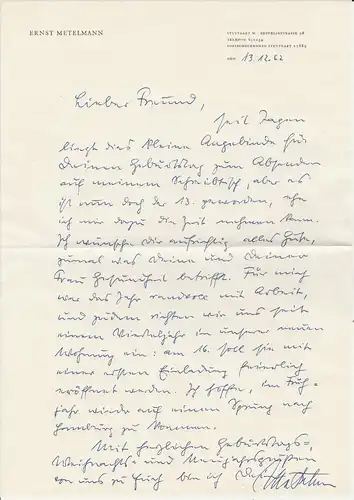 ERNST METELMANN
STUTTGART W · ZEPPELINSTRASSE 38
TELEFON
POSTSCHECKKONTO STUTTGART
DEN 13.12.62
Lieber Freund,
seit Tagen
liegt dies kleine Angebinde für
Deinen Geburtstag zum Absenden
auf meinem Schreibtisch, aber es
ist nun doch der 13. geworden, ehe
ich mir dazu die Zeit nehmen kann.
Ich wünsche Dir aufrichtig alles Gute,
zumal was Deine und Deiner
Frau Gesundheit betrifft. Für mich
war das Jahr randvoll mit Arbeit,
und zudem richten wir uns seit
einem Vierteljahr in unserer neuen
Wohnung ein: am 16. soll sie mit
einer ersten Einladung feierlich
eröffnet werden. Ich hoffe, im Früh-
jahr wieder auf einen Sprung nach
Hamburg zu kommen.
Mit herzlichen Geburtstags-,
Weihnachts- und Neujahrsgrüßen
von uns zu Euch bin ich Dein
Metelmann